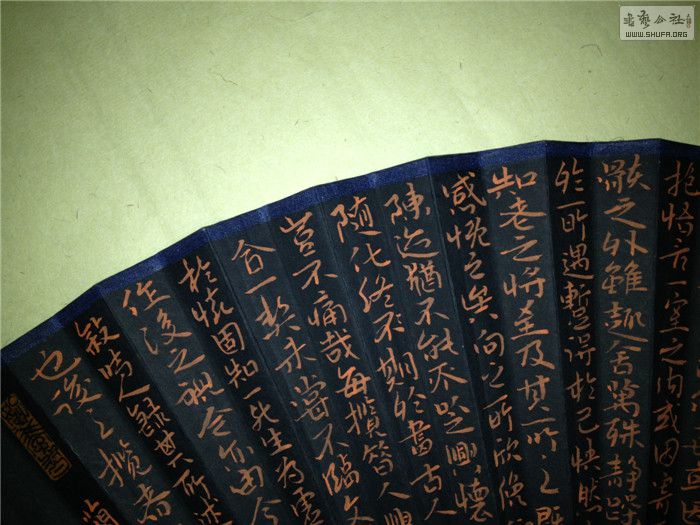 書藝公社
WWW.SHUFA.ORG
抱悟言一室之內或因寄
骸之外雖趣舍萬殊靜躁
於所遇蹔得於己快然
知老之將至及其所之既
感慨之矣向之所欣俛
陳迹猶不能不以之興懷
隨化終不期於盡古人
豈不痛哉每攬昔人興
合一契未嘗不臨文
於懷固知一死生為虛
作後之視今亦由今
敘時人錄其所述
也後之攬者